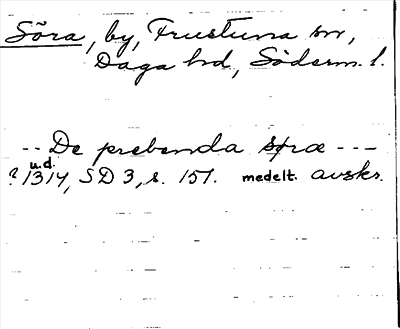 Söra, by, Frustuna sn,
Daga hd, Söderm. l.
-- De prebenda Søræ ---
u.d.
? 1314, SD 3, s. 151. medelt. avskr.